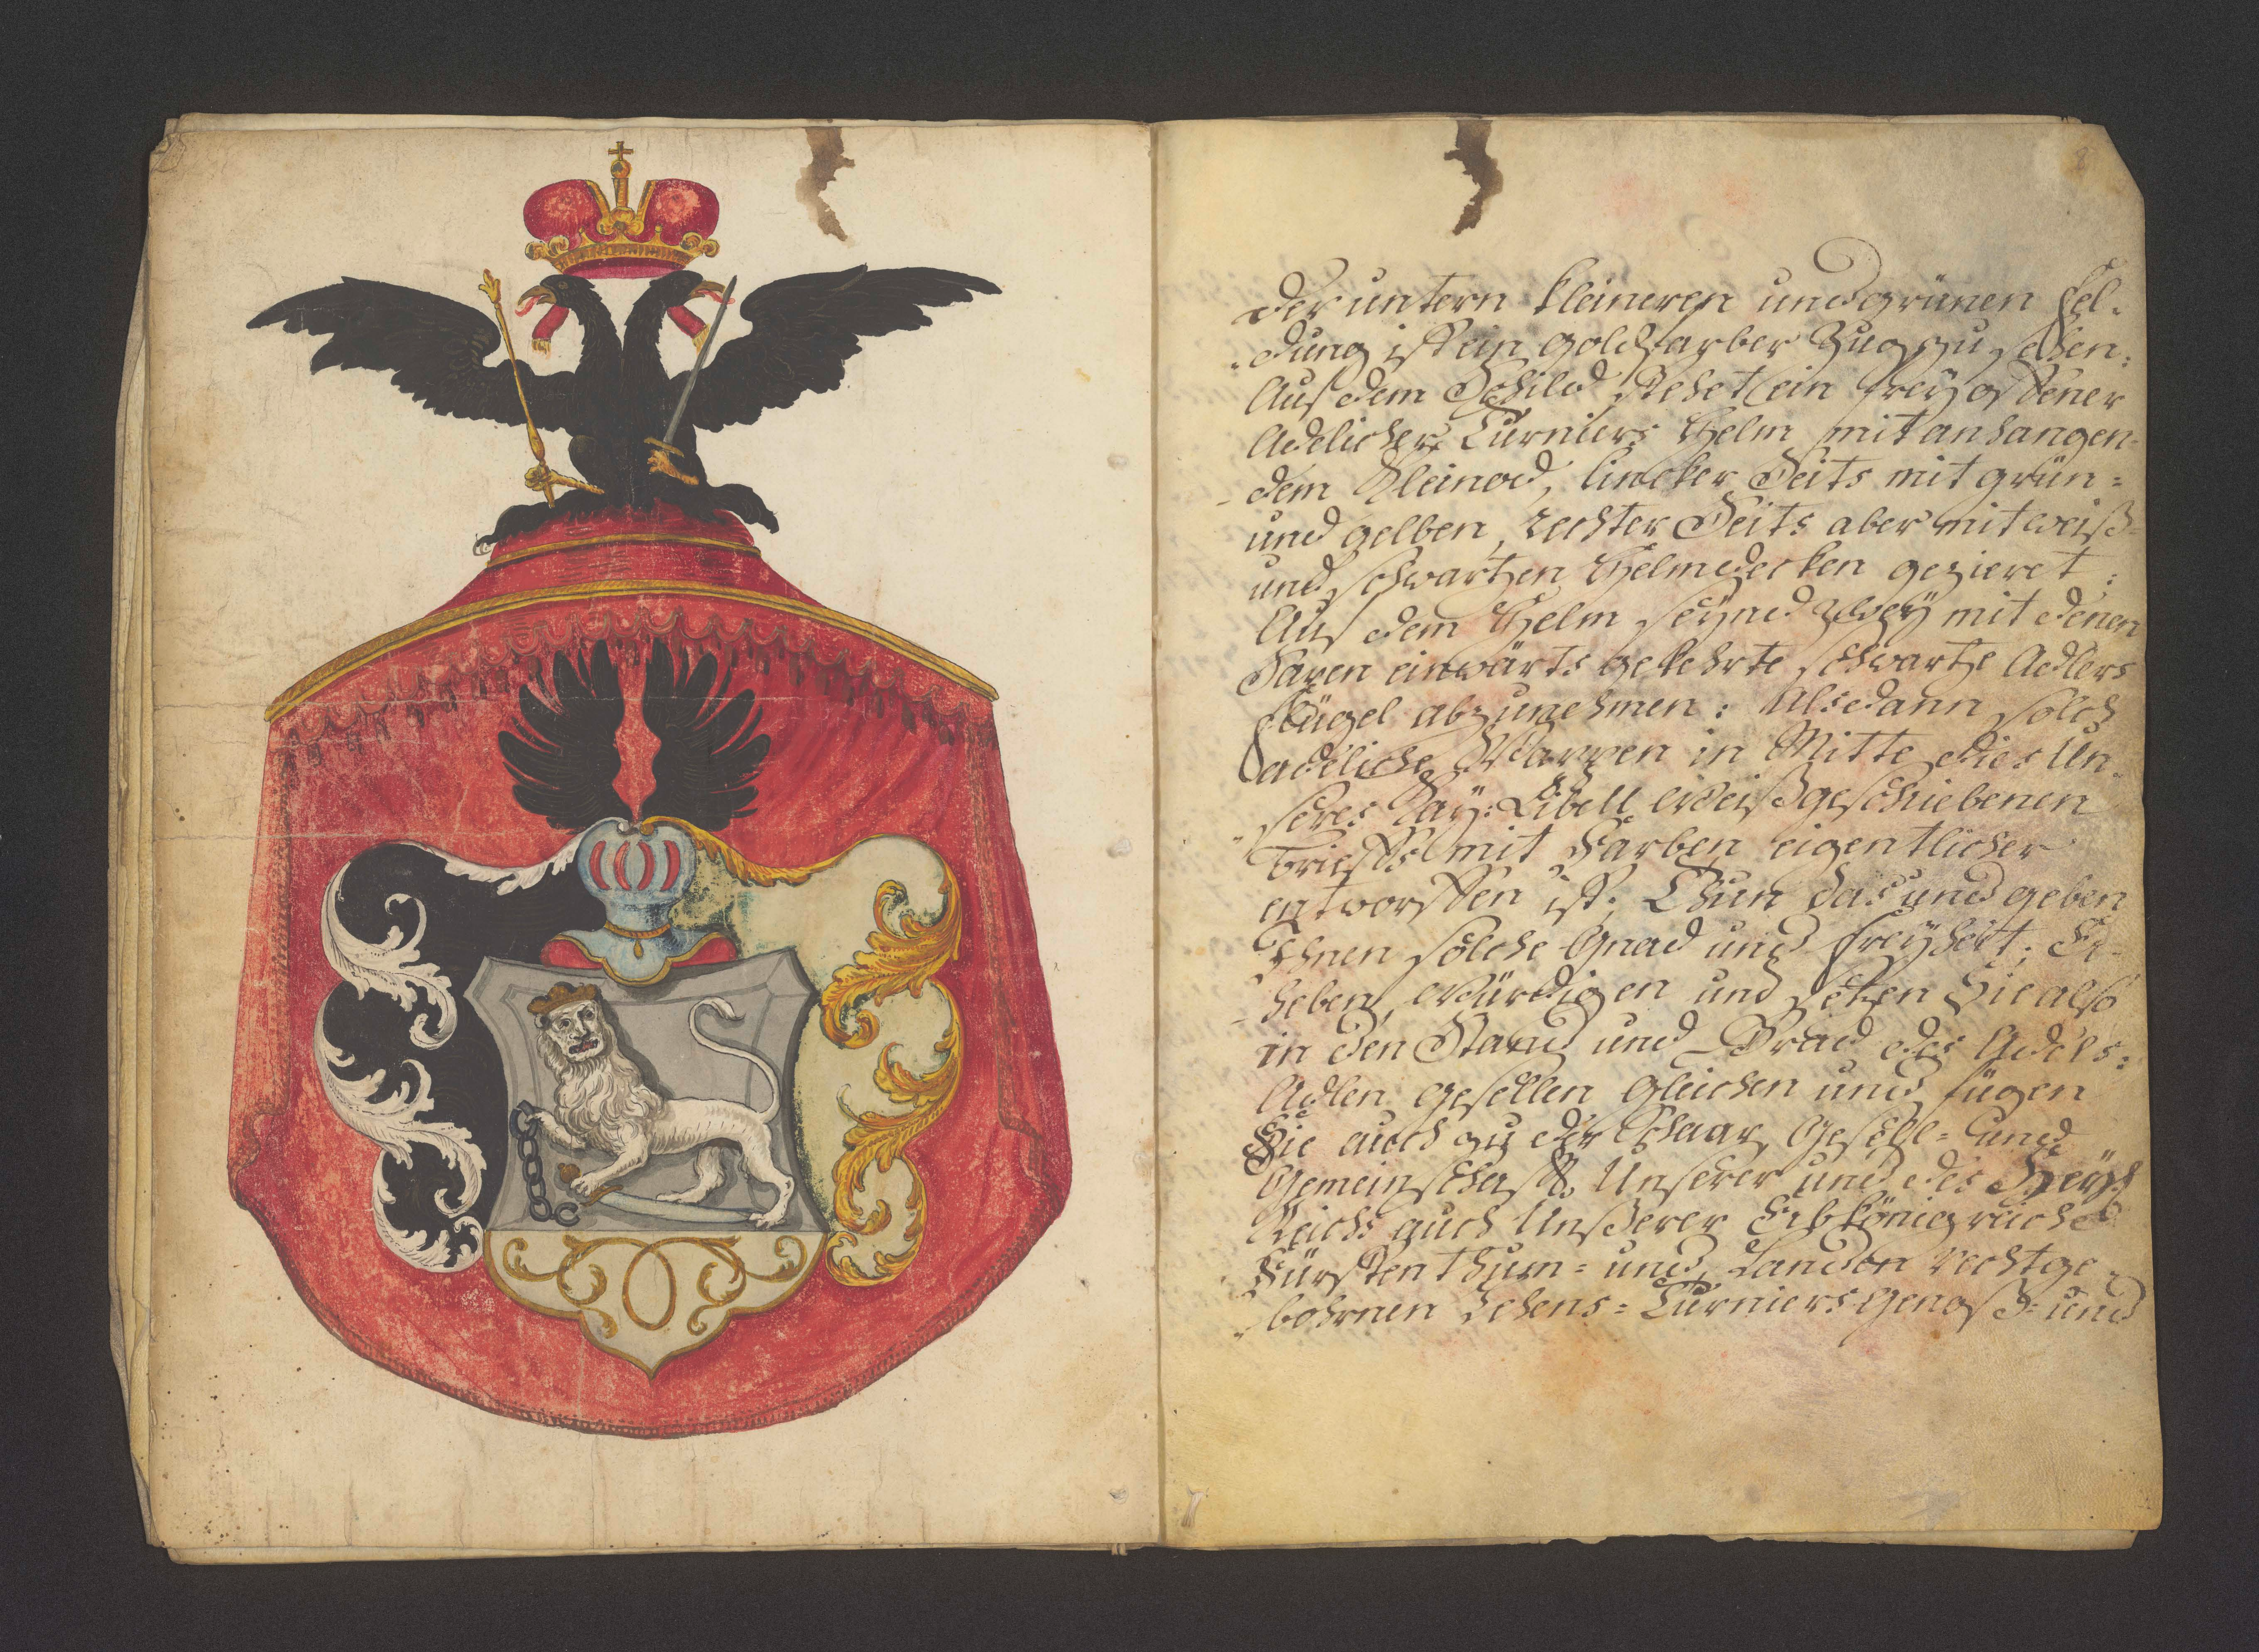 8
der untern kleineren und grünen Fel-
dung ist ein goldfarber Zug zu sehen:
Auf dem Schild stehet ein frey offener
Adelicher Turniers Helm mit anhangen-
dem Kleinod, lincker Seits mit grün-
und gelben, rechter Seits aber mit weiß-
und schwartzen Helmdecken gezieret:
Auf dem Helm seynd zwey mit denen
Saxen einwärts gekehrte schwartze Adlers
Flügel abzunehmen: Alsdann solch
adeliche Wappen in Mitte dies Un-
seres Kay: Libell weiß geschriebenen
Brieffs mit Farben eigentlicher
entworffen ist; Thun das und geben
Ihnen solche Gnad und Freyheit; Er-
heben, würdigen und setzen Sie also
in den Stand und Grad des Adels:
Adlen gesellen gleichen und fügen
Sie auch zu der Schaar, Gesell- und
Gemeinschafft Unserer und des Heyl:
Reichs auch Unßerer Erbkönigreiche
Fürstenthum- und Landen rechtge-
bohrnen Lehens- Turniers Genoß- und